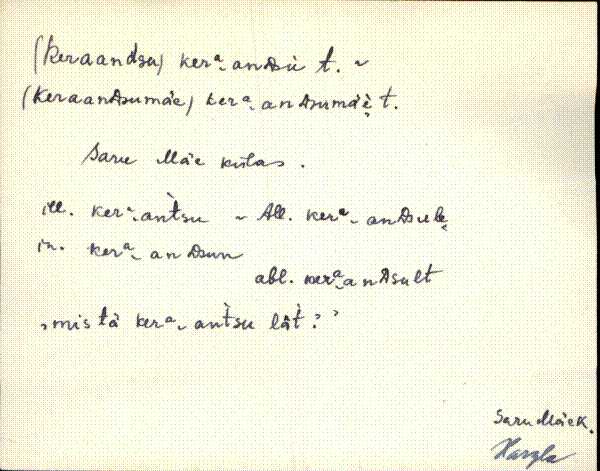 (Keraandsu) kerᵃ‿anDsù t. ~
(KeraanDsumäe) kerᵃ‿anDsumäè̬ t.
Saru Mäe külas.
ill. kerᵃ‿aǹtsu ~ All. kerᵃ‿anDsulȩ
in. kerᵃ‿anDsun
abl. kerᵃ‿anDsult
„mis tå̀ kerᵃ‿aǹtsu lät̀?”
Saru Mäe k.
Hargla